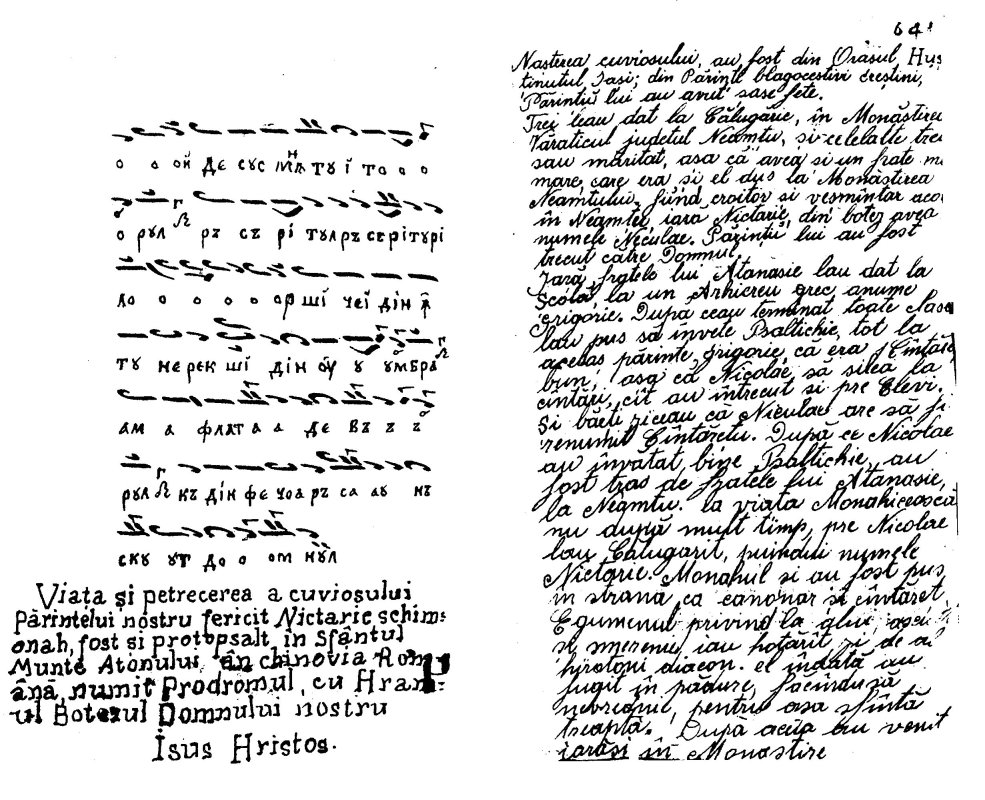 о о ой Де сус мѧ н ту ї то о о
о рул рѫ съ рі тул ръ серітурі
ло о о о о о ор ші чеї дін
ту нерек ші дін оу у умбра
ам а флат а а де въ ъ ъ
рул къ дін фе чоа ръ са ау нъ
ску ут до о ом нул
Viata și petrecerea a cuviosului
Părintelui nostru fericit Nictarie schim-
onah, fost și protopsalt în Sfântul
Munte Atonului, ân chinovia Rom-
ână, numit Prodromul, cu Hram-
ul Botezul Domnului nostru
Isus Hristos.
64
Nasterea cuviosului, au fost din Orasul, Huș
tinutul Iasi; din Părinți blagocestivi creștini,
Părintii lui au avut sase fete.
Trei leau dat la Călugărie, în Monăstirea
Văraticul judetul Neamtu, si celelalte trei
sau măritat, asa că avea si un frate m
mare, care era si el dus la Monăstirea
Neamtului, fiind croitor si vesmintar aco
în Neamtu, iara Nictarie, din botez avea
numele Neculae. Părintii lui au fost
trecut către Domnul
Iară, fratele lui Atanasie lau dat la
Scola, la un Arhiereu grec, anume
Grigorie. După ceau terminat toate clasa
lau pus să învete Psaltichie, tot la
acelas părinte Grigorie, că era Cîntăret
bun, asa că Nicolae să silea la
cîntări, cît au întrecut si pre Elevi.
Si băeti ziceau că Niculae are să fi
renumit Cîntăretu. După ce Nicolae
au învătat, bine Psaltichie, au
fost tras de fratele lui Atanasie,
la Neamtu. la viata Monahicească
nu după mult timp, pre Nicolae
lau Călugarit, puindui numele
Nictarie. Monahul si au fost pus
în strană ca canonar si cîntăret
Egumenul privind la glui,
si smerenie, iau hotărît si de a
hirotoni diacon. el îndată au
fugit în pădure, făcîndusă
nevrednic, pentru asa sfîntă
treaptă. După aceia au venit
iarăsi în Monastire